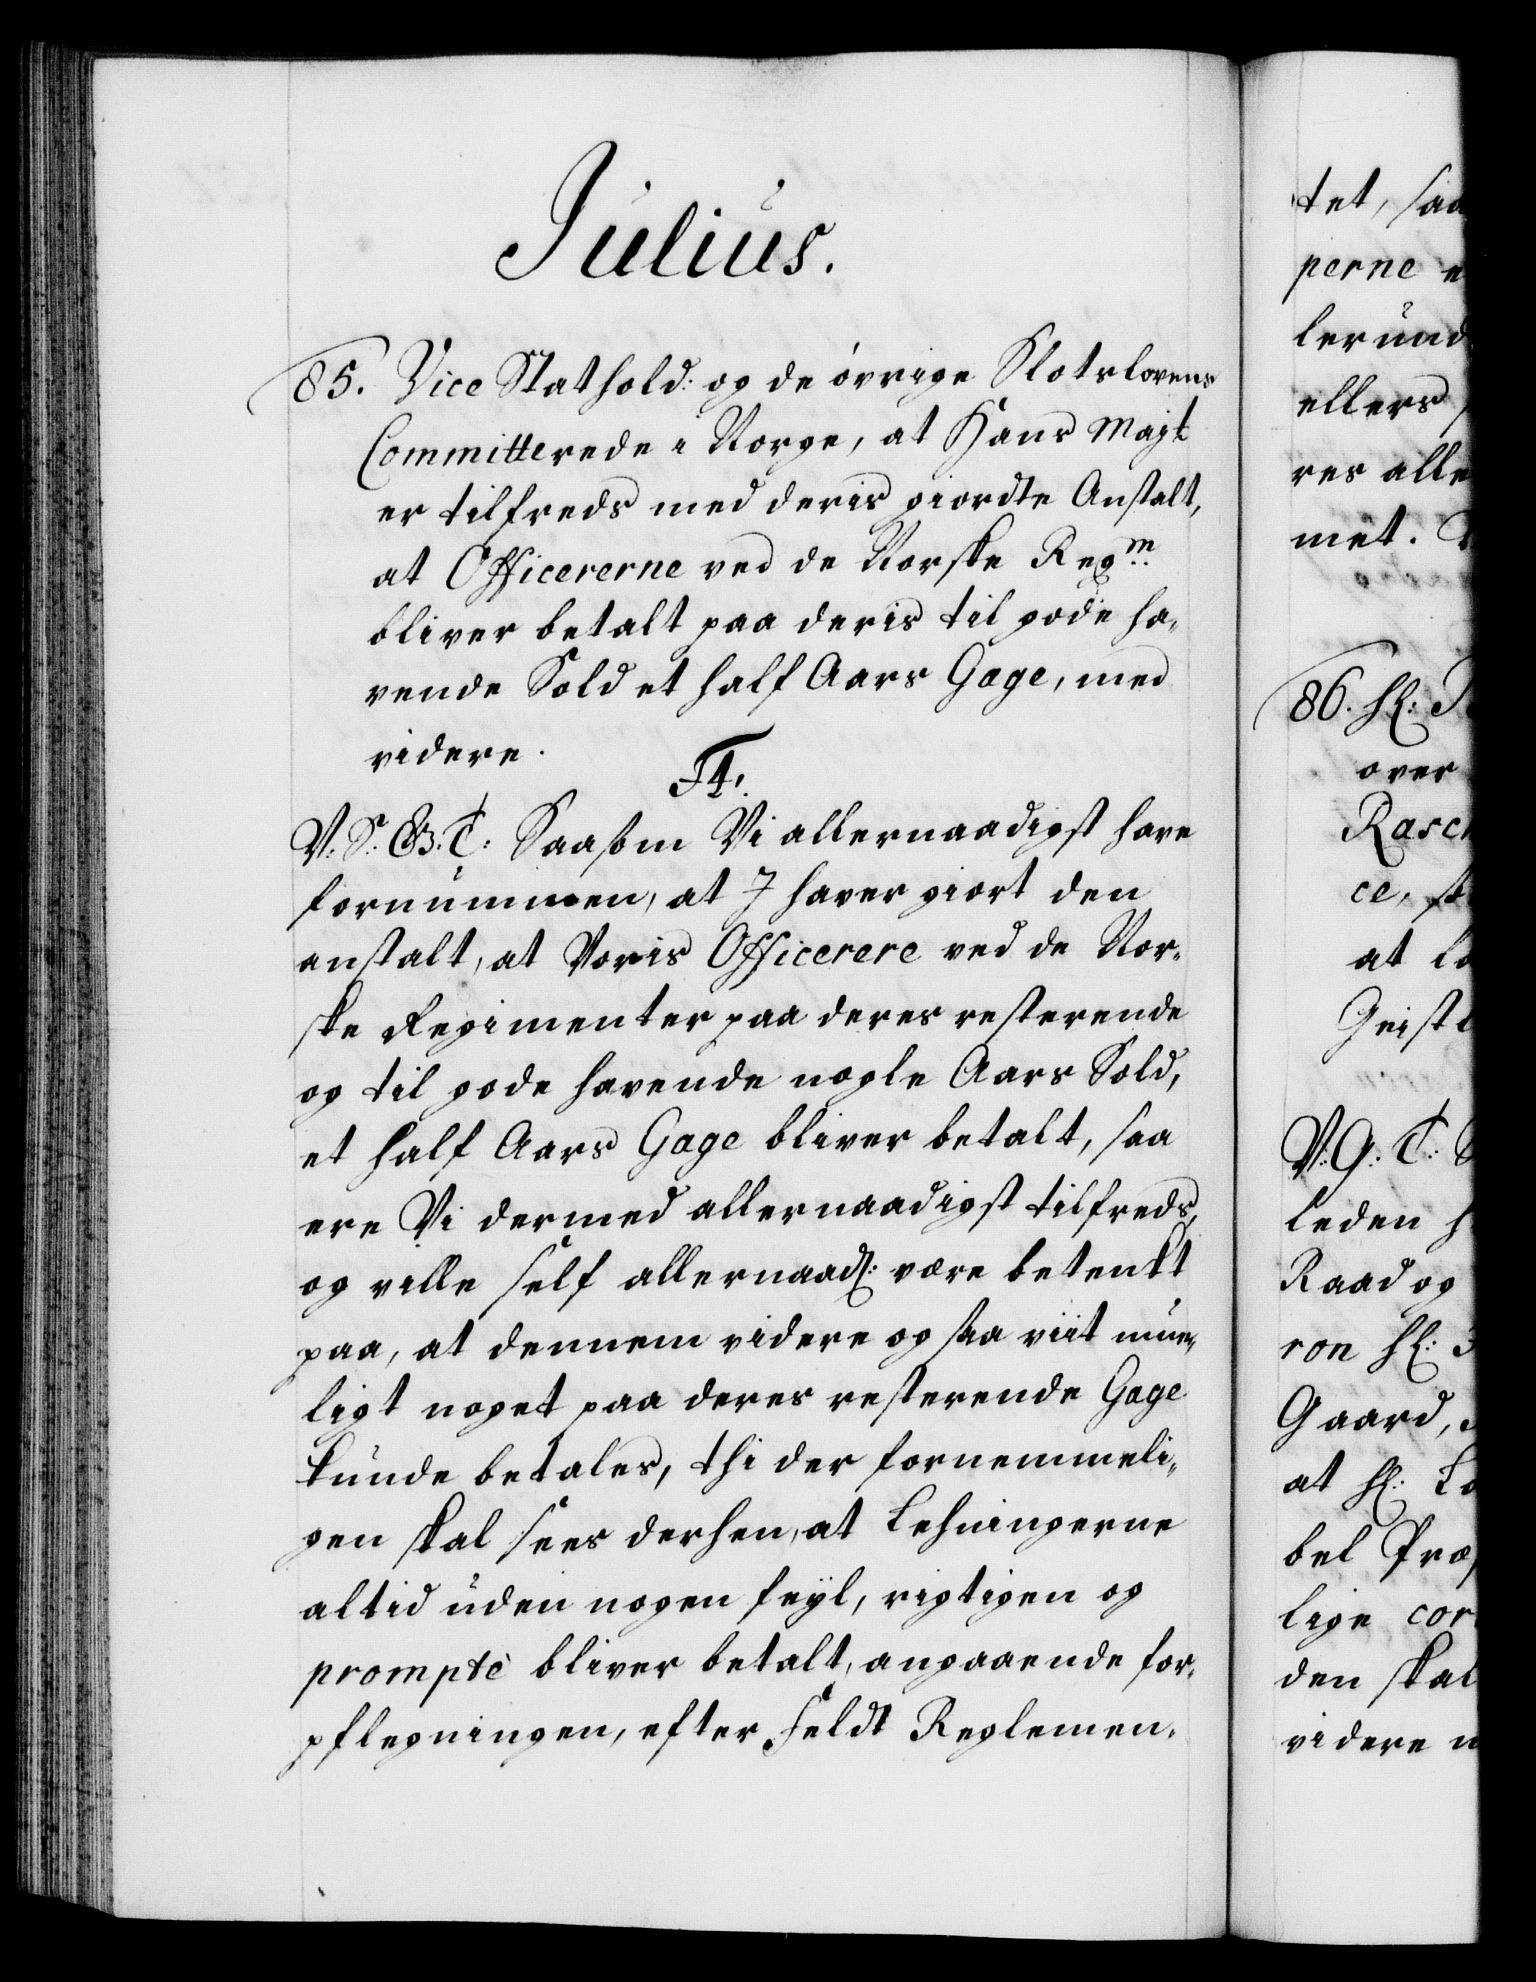 Julius.
85. Vice Stathold: og de övrige Slotslovens
Committerede i Norge, at Hans Majt
er tilfreds med deris giordte Anstalt,
at Officererne ved de Norske Regm:
bliver betalt paa deris til gode ha-
vende Sold et half Aars Gage, med
videre.
F4.
V. S. G. T: Saasom Vi allernaadigst have
fornummen, at I haver giort den
anstalt, at Voris Officerere ved de Nor-
ske Regimenter paa deres resterende
og til gode havende nogle Aars Sold,
et half Aars Gage bliver betalt, saa
ere Vi dermed allernaadigst tilfreds,
og ville self allernaad: være betenkt
paa, at dennem videre og saa viit mue-
ligt noget paa deres resterende Gage
kunde betales, thi der fornemmeli-
gen skal sees derhen, at Lehningerne
altid uden nogen feyl, rigtigen og
prompte bliver betalt, angaaende for-
pflegningen, efter Feldt Reglemen-
tet, saa
perne
lerund
ellers
res alle
met.
86. Hl:
over
Rasch
ce,
at
Geistl
V: G: T:
leden
Raad og
ron Hl:
Gaard,
at Hl:
bel Præ
lige cor
den skal
videre